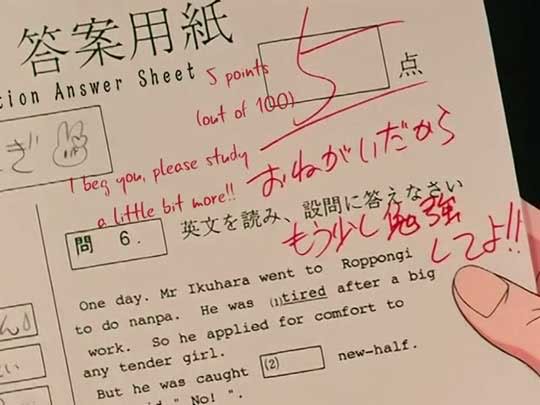 答案用紙
tion Answer Sheet
5 points
(out of 100)
5
点
ぎ
I beg you, please study
a little bit more!!
おねがいだから
もう少し勉強
してよ!!
問 6.
英文を読み、設問に答えなさい
One day. Mr Ikuhara went to Roppongi
to do nanpa. He was (1)tired after a big
work. So he applied for comfort to
any tender girl.
But he was caught (2) new-half.
" No! ".